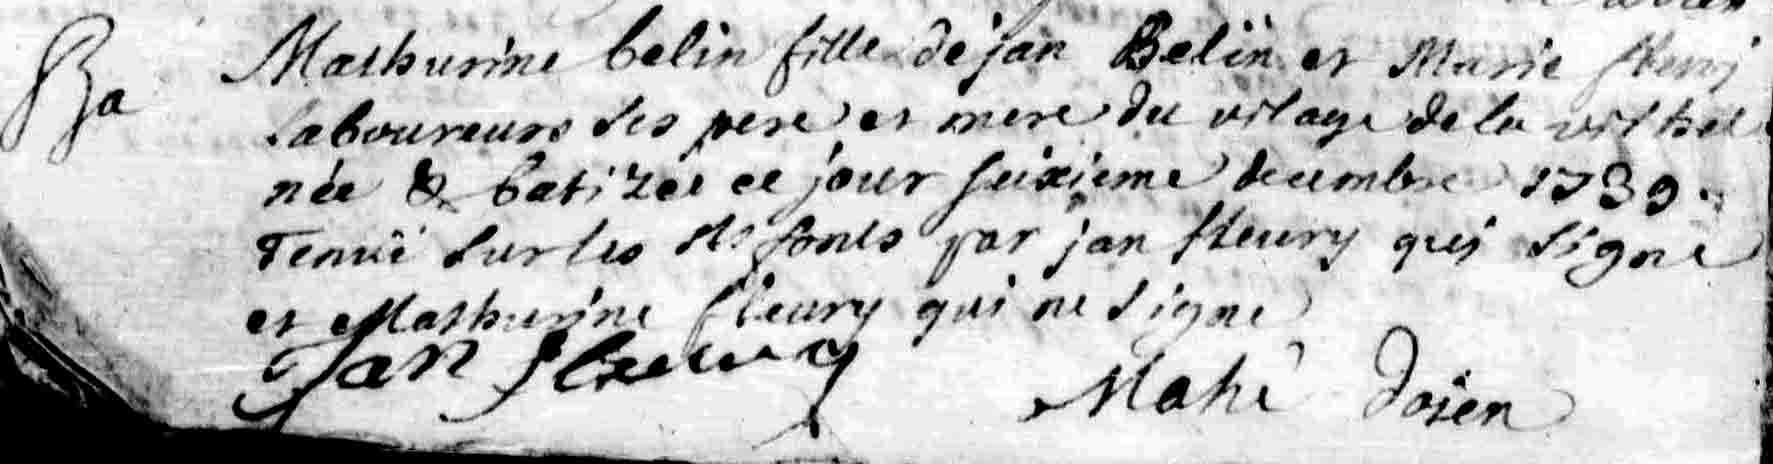 Ba
Mathurine belin fille de jan Belin et Marie fleury
Laboureurs Ses pere et mere du vilage de la
née & batizée ce jour seixieme decembre 1739
Tenüe Sur les sts fonts par jan fleury qui Signe
et Mathurine fleury qui ne Signe
Jan fleury
Mahé doien